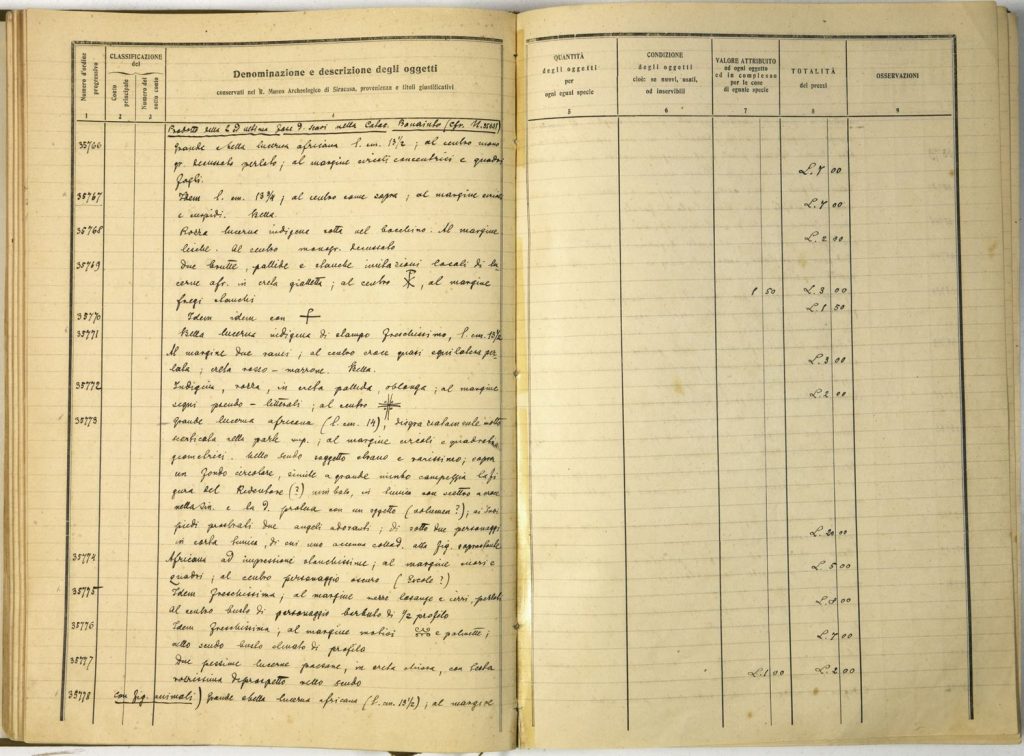 Numero d'ordine progressivo
CLASSIFICAZIONE del
Conto principale
Numero del sotto conto
Denominazione e descrizione degli oggetti
conservati nel R. Museo Archeologico di Siracusa, provenienza e titoli giustificativi
1 2 3 4
Prodotto della 2ª ultima fase d. scavi nella Catac. Bonaiuto (Cfr. N.
35766 Grande bella lucerna africana l. cm. 13½; al centro mono
gr. decussato perlato; al margine circoli concentrici e quadri
fogli.
35767 Idem l. cm. 13¾; al centro come sopra; al margine
e cuspidi. Bella.
35768 Rozza lucerna indigena rotta nel becchino. Al margine
lische. Al centro monogr. decussato
35769 Due brutte, pallide e stanche imitazioni locali di lu-
cerne afr. in creta gialletta; al centro ☧, al margine
fregi stanchi
35770 Idem idem con
35771 Bella lucerna indigena di stampo freschissimo, l. cm. 13½
Al margine due rami; al centro croce quasi equilatera per-
lata; creta rosso-marrone. Bella.
35772 Indigena, rozza, in creta pallida, oblonga; al margine
segni pseudo-litterali; al centro
35773 Grande lucerna africana (l. cm. 14), disgraziatamente rotta
e scorticata nella parte sup.; al margine circoli e quadrati
geometrici. Nello scudo soggetto strano e rarissimo; sopra
un fondo circolare, simile a grande nimbo campeggia la fi
gura del Redentore (?) nimbato, in tunica
nella sin. e la d. protesa con un oggetto (volumen?); ai suoi
piedi prostrati due angeli adoranti; di sotto due personaggi
in corta tunica, di cui uno accenna alla fig. soprastante
35774 Africana ad impressione stanchissima; al margine cuori e
quadri; al centro personaggio oscuro (Ercole?)
35775 Idem freschissima; al margine nerre losange e cirri, perlati
Al centro busto di personaggio barbuto di ½ profilo
35776 Idem freschissima, al margine motivi e palmette;
nello scudo busto di profilo
35777 Due pessime lucerne pacione, in creta chiara, con testa
rozzissima di prospetto nello scudo
35778 con fig. animali) Grande e bella lucerna africana (l. cm. 13½); al margine
QUANTITÀ degli oggetti per ogni ogni specie
CONDIZIONE degli oggetti cioè: se nuovi, usati, od inservibili
VALORE ATTRIBUITO ad ogni oggetto ed in complesso per le cose di eguale specie
TOTALITÀ dei prezzi
OSSERVAZIONI
5 6 7 8 9
L. 7 00
L. 7 00
L. 2 00
1 50 L. 3 00
L. 1 50
L. 3 00
L. 2 00
L. 20 00
L. 5 00
L. 8 00
L. 7 00
L. 1 00 L. 2 00